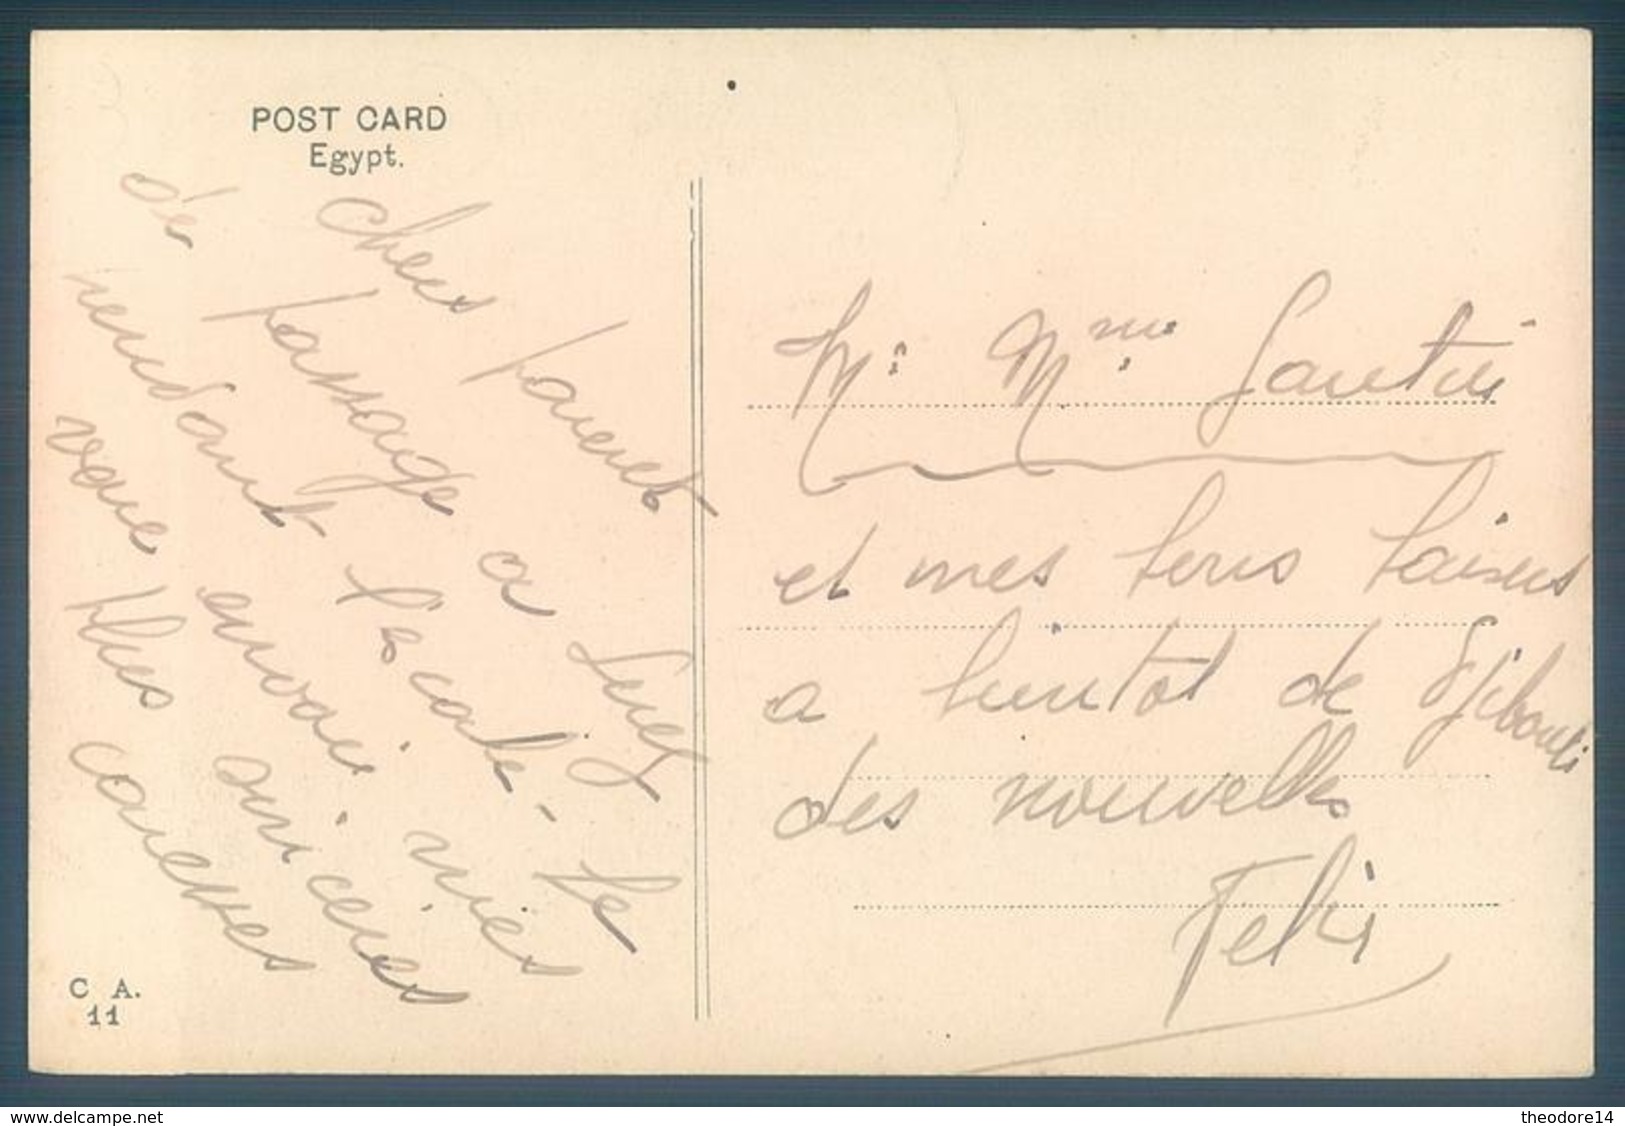 POST CARD
Egypt.
Chers parent
de passage a Suez
pendant l'escale - Je
vous envoie mes
plus sincères
caresses
C A.
11
Mr Mme Gautier
et mes bons baisers
a bientot de Djibouti
des nouvelles
Felix
www.delcampe.net
theodore14